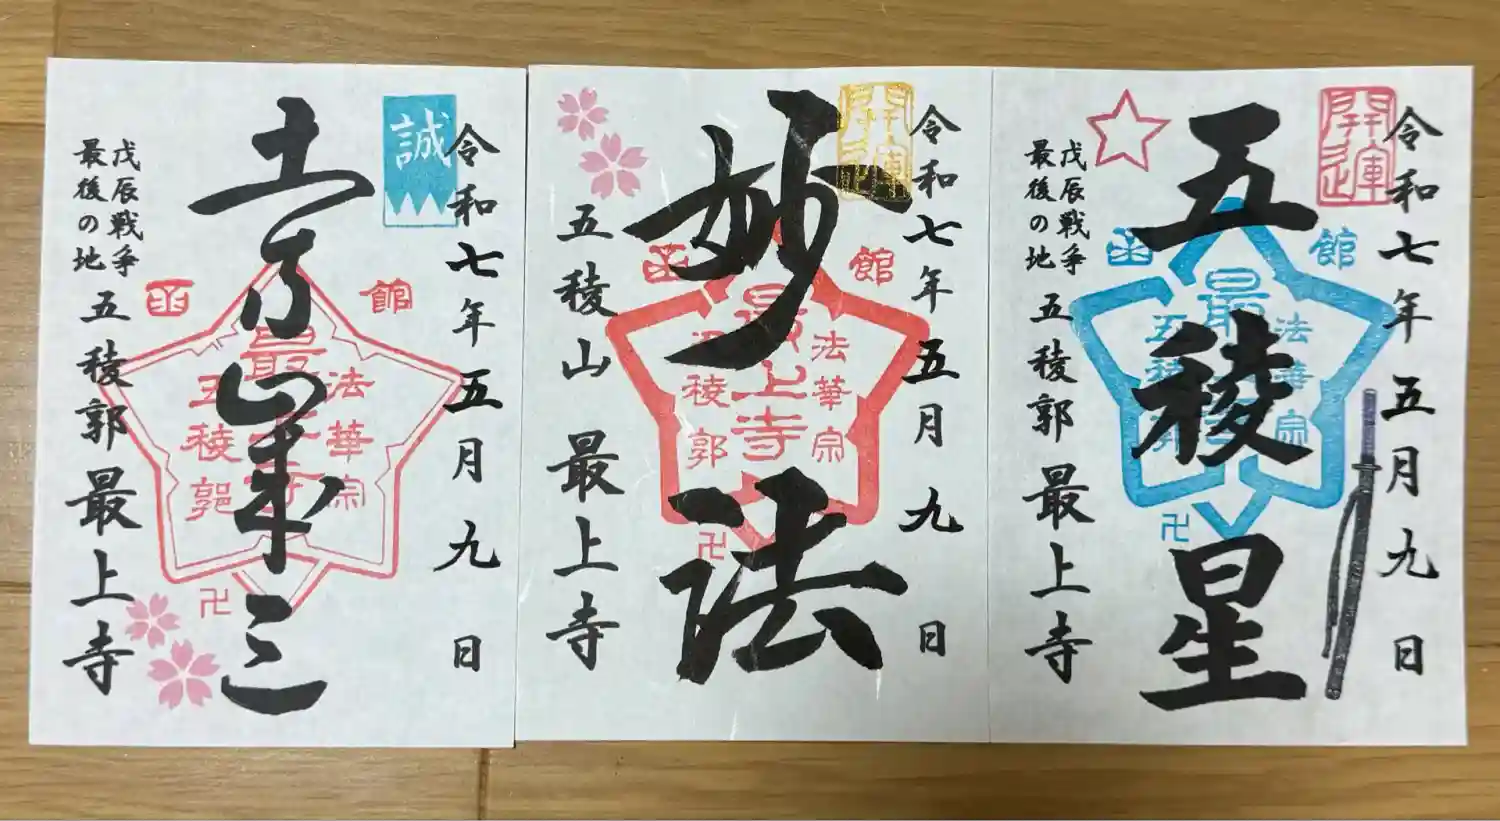 令和七年五月九日
誠
土方歳三
函館
法華宗
最上寺
五稜郭
卍
戊辰戦争
最後の地
五稜郭 最上寺
令和七年五月九日
開運
妙法
函館
法華宗
最上寺
五稜郭
卍
五稜山 最上寺
令和七年五月九日
開運
五稜星
函館
法華宗
最上寺
五稜郭
卍
戊辰戦争
最後の地
五稜郭 最上寺